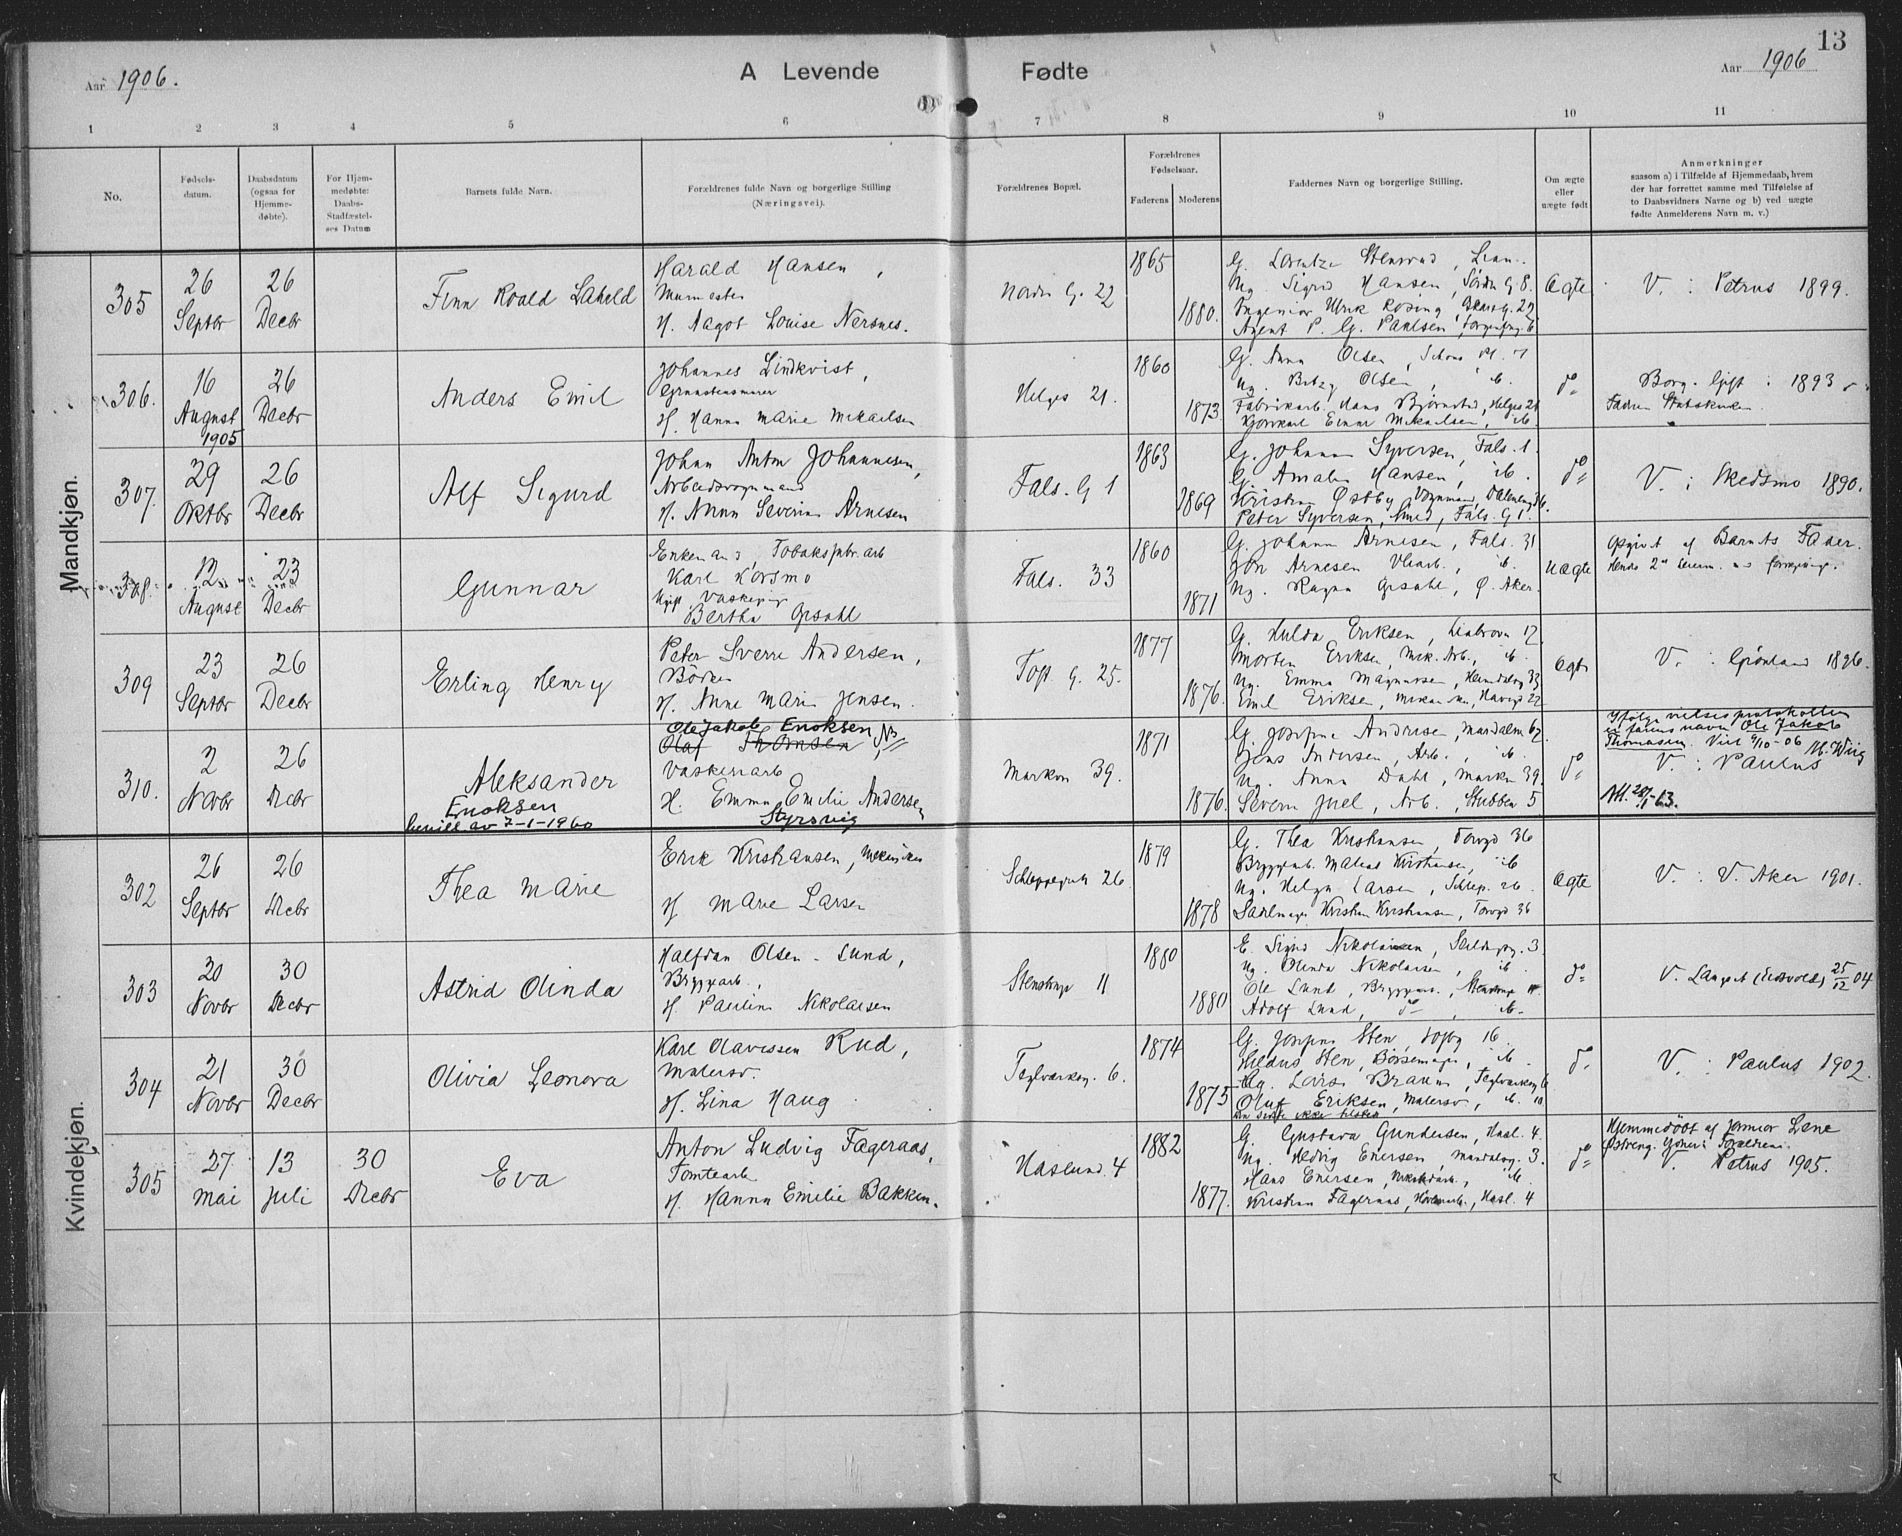 13
Aar 1906.
A Levende Fødte
Aar 1906
1 2 3 4 5 6 7 8 9 10 11
No.
Fødsels-
datum.
Daabsdatum
(ogsaa for
Hjemme-
døbte).
For Hjem-
medøbte:
Daabs-
Stadfæstel-
ses Datum
Barnets fulde Navn.
Forældrenes fulde Navn og borgerlige Stilling
(Næringsvei).
Forældrenes Bopæl.
Forældrenes
Fødselsaar.
Faderens Moderens
Faddernes Navn og borgerlige Stilling.
Om ægte
eller
uægte født
Anmerkninger
saasom a) i Tilfælde af Hjemmedaab, hvem
der har forrettet samme med Tilføielse af
to Daabsvidners Navne og b) ved uægte
fødte Anmelderens Navn m. v.)
Mandkjøn.
305
26
Septbr
26
Decbr
Finn Roald
Harald Hansen,
Murmester
H. Aagot Louise Nersnes.
Nordre G. 22
1865
1880.
G. Lorentze Stensrud,
Ug. Sigrid Hansen, G 8.
Ingeniør Ulrik Rosing,
Agent P. G. Paulsen,
Ægte
V. : Petrus 1899.
306.
16
August
1905
26
Decbr
Anders Emil
Johannes Lindkvist,
H. Hanna Marie Mikaelsen
Helges 21.
1860
1873
G. Anna Olsen, Schous Pl. 7
Ug. Betzy Olsen, ib.
Fabrikarb. Hans Bjørnstad, Helges 21
Kjørekarl Einar Mikaelsen, ib
do
Borg. Gift : 1893
Fadren Statskirken
307.
29
Oktbr
26
Decbr
Alf Sigurd
Johan Anton Johannesen,
Arbeidsvognmand
H. Anna Severine Arnesen
Fals. G 1
1863
1869
G. Johanne Syversen, Fals. 1
G. Amalie Hansen, ib.
Kristian Østby, Vognmand,
Peter Syversen, Smed, Fals. G 1.
do
V. : Skedsmo 1890.
308.
12
August
23
Decbr
Gunnar
Enkemand, Tobaksfabr. arb
Karl Korsmo
Ugift Vaskepige
Bertha Opsahl
Fals. 33
1860
1871
G. Johanne Arnesen, Fals. 31
Jon Arnesen, ib.
Ug. Ragna Opsahl, Ø. Aker.
Uægte
Opgivet af Barnets Fader.
309
23
Septbr
26
Decbr
Erling Henry
Peter Sverre Andersen,
Bödker
H. Anne Marie Jensen.
Toft. G. 25.
1877
1876.
G. Hulda Eriksen, 17.
Morten Eriksen, Mek. Arb., ib.
Ug. Emma Magnussen, 33
Emil Eriksen, 22
Ægte
V. : Grønland 1896.
310.
2
Novbr
26
Decbr
Aleksander
Enoksen
bevill av 7-1-1960
Ole Jakob Enoksen
Olaf Thomsen
Vaskeriarb
H. Emma Emilie Andersen
Styrsvig
Markvn 39.
1871
1876.
G. Josefine Andersen, Maridalsv 67.
Jens Andersen, Arb., ib.
Ug. Anna Dahl, Markvn 39.
Severin Juel, Arb., Stubben 5
do
Ifølge vielsesprotokollen
er farens navn Ole Jakob
Thomasen. Viet 6/10-06 M. Wiig
V. : Paulus
Kvindekjøn.
302
26
Septbr
26
Decbr
Thea Marie
Erik Kristiansen, Mekaniker
H Marie Larsen
Schleppegrels 26
1879
1878
G. Thea Kristiansen, Torvgd 36
Bryggearb. Matias Kristiansen, ib
Ug. Helga Larsen, Schlep. 26.
Sadelmager Kristian Kristiansen, Torvgd 36
Ægte
V. : V. Aker 1901.
303
20
Novbr
30
Decbr
Astrid Olinda
Halfdan Olsen-Lund,
Bryggearb.,
H Pauline Nikolaisen
Stenstrups 11
1880
1880
E. Sigrid Nikolaisen, 3.
Ug. Olinda Nikolaisen, ib.
Ole Lund, Bryggearb., Stenstrups 11
Adolf Lund, do, ib.
do
V. Langset (Eidsvold) 25/12 04
304
21
Novbr
30
Decbr
Olivia Leonora
Karl Olavessen Rud,
Malersv.
H. Lina Haug
Teglverksg. 6.
1874
1875
G. Josefine Sten, 16.
Hildus Sten, Børsemager, ib
Ug. Lovise Braun, Teglverksg 6
Oluf Eriksen, Malersv, ib. 10
do.
V. : Paulus 1902.
305
27
Mai
13
Juli
30
Decbr
Eva
Anton Ludvig Fageraas,
Tomtearb
H. Hanna Emilie Bakken.
Haslund. 4
1882
1877.
G. Gustava Gundersen, Hasl. 4.
Ug. Hedvig Enersen, 3.
Hans Enersen, ib.
Kristian Fageraas, Hasl. 4
do
Hjemmedöbt af Jormor Lene
Østreng. Forældrene
V. Petrus 1905.